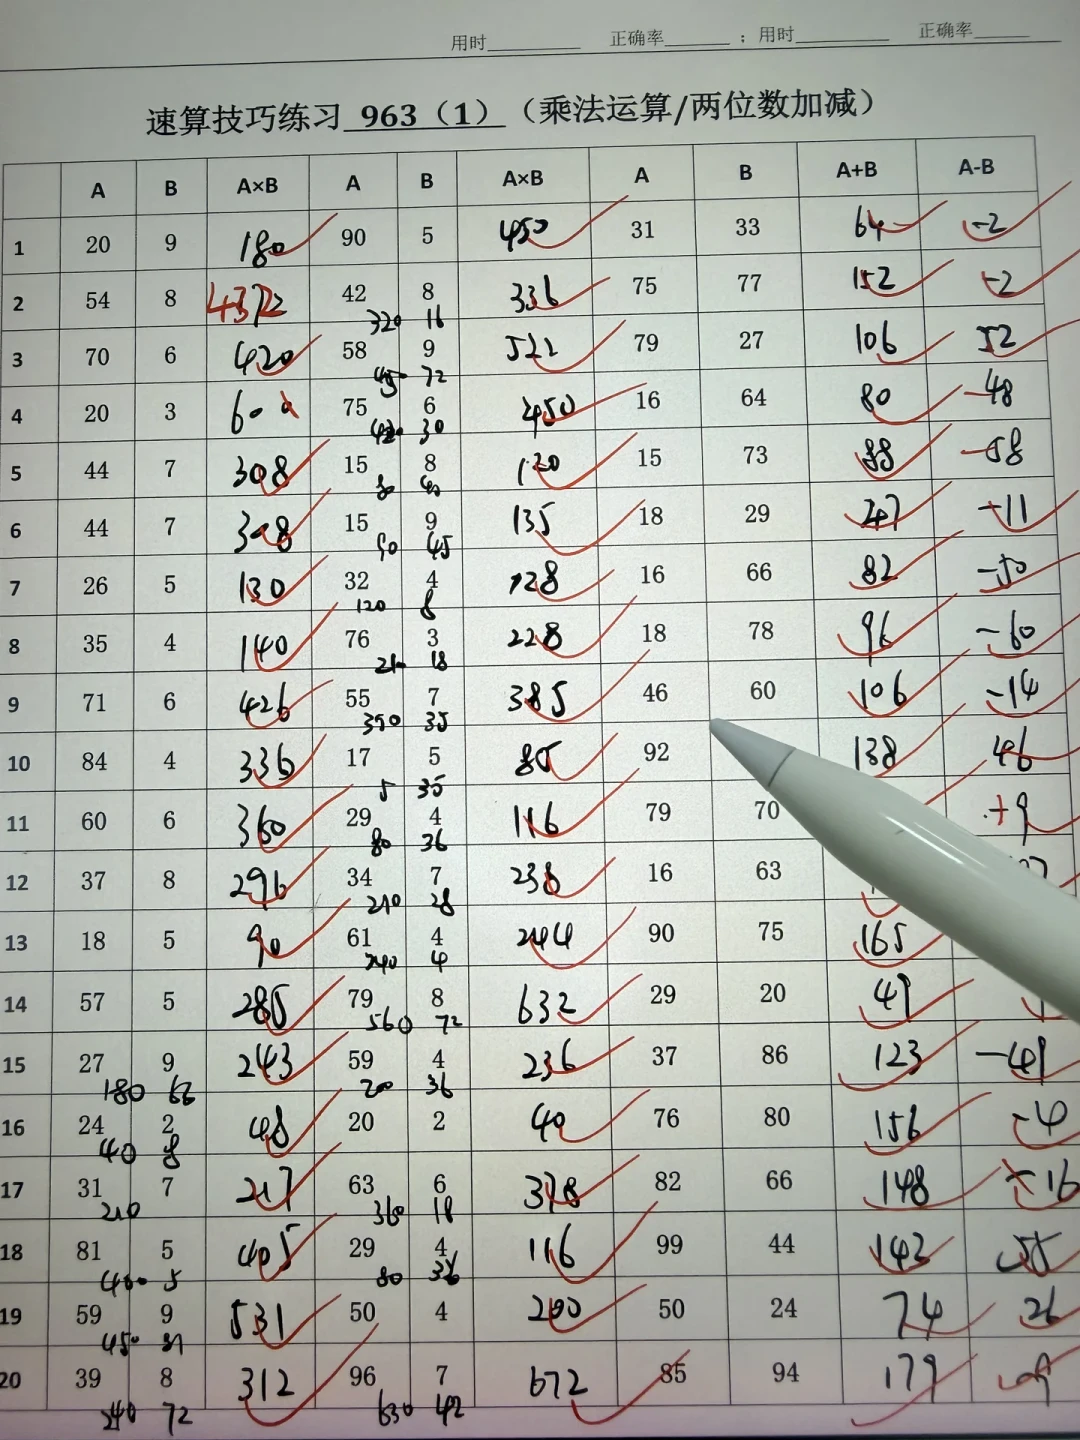 用时 正确率 ；用时 正确率
速算技巧练习 963（1）（乘法运算/两位数加减）
A B A×B A B A×B A B A+B A-B
1 20 9 180 90 5 450 31 33 64 -2
2 54 8 4372 42 8 336 75 77 152 -2
320 16
3 70 6 420 58 9 522 79 27 106 52
45 72
4 20 3 600 75 6 450 16 64 80 -48
420 30
5 44 7 308 15 8 120 15 73 88 -58
80 40
6 44 7 308 15 9 135 18 29 47 -11
90 45
7 26 5 130 32 4 128 16 66 82 -50
120 8
8 35 4 140 76 3 228 18 78 96 -60
210 18
9 71 6 426 55 7 385 46 60 106 -14
350 35
10 84 4 336 17 5 85 92 138 46
5 35
11 60 6 360 29 4 116 79 70 +9
80 36
12 37 8 296 34 7 238 16 63
210 28
13 18 5 90 61 4 244 90 75 165
240 4
14 57 5 285 79 8 632 29 20 49
560 72
15 27 9 243 59 4 236 37 86 123 -49
180 63 200 36
16 24 2 48 20 2 40 76 80 156 -4
40 8
17 31 7 217 63 6 378 82 66 148 16
210 360 18
18 81 5 405 29 4 116 99 44 143 55
400 5 80 36
19 59 9 531 50 4 200 50 24 74 26
450 81
20 39 8 312 96 7 672 85 94 179 -9
240 72 630 42